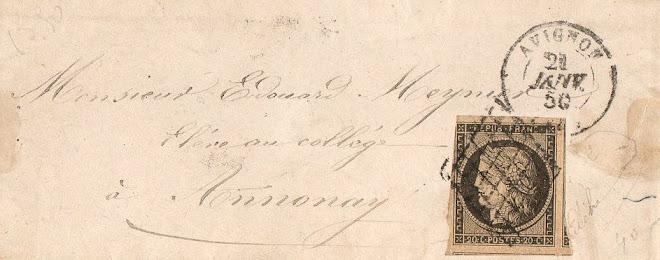 AVIGNON
21
JANV.
50
Monsieur Edouard Meynier
Elève au collège
à Annonay
REPUB. FRANC.
20.C.POSTES.20.C.